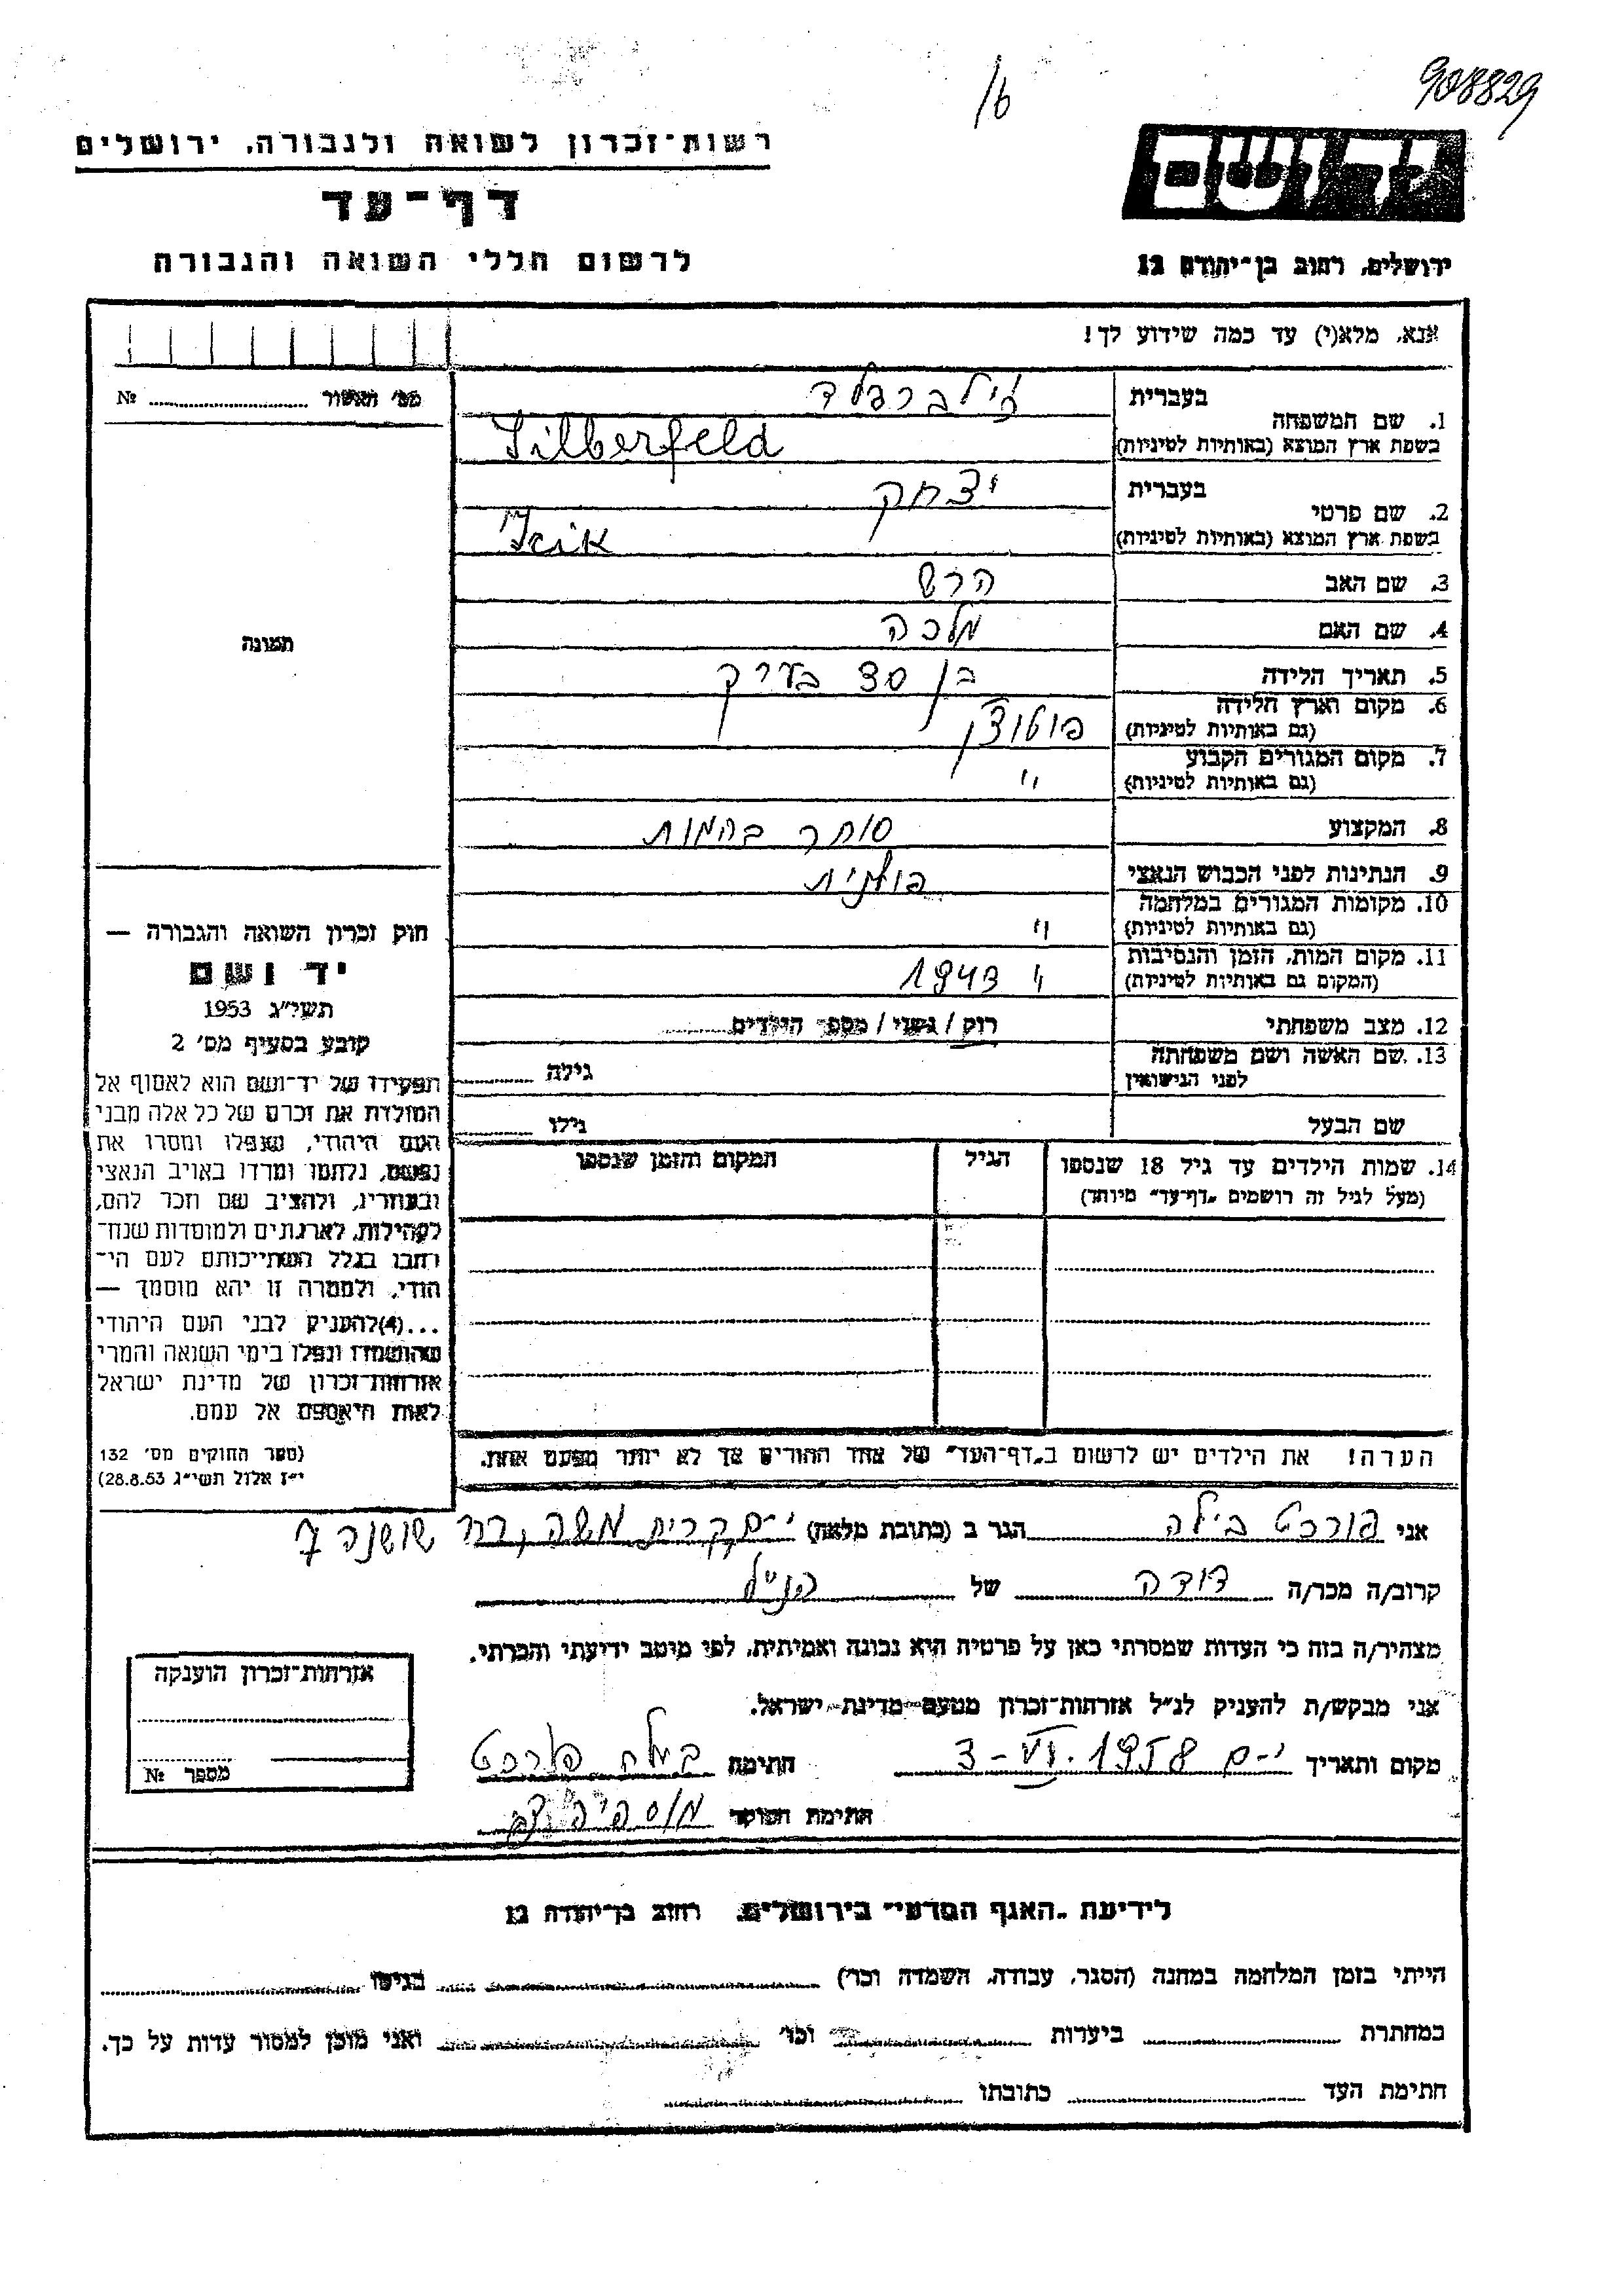 908829
16
רשות־זכרון לשואה ולגבורה, ירושלים
דף־עד
לרשום חללי השואה והגבורה
יד ושם
ירושלים, רחוב בן־יהודה 12
אנא, מלא(י) עד כמה שידוע לך!
מס׳ האשור № 
1. שם המשפחה
בעברית זילברפלד
בשפת ארץ המוצא (באותיות לטיניות) Silberfeld
2. שם פרטי
בעברית יצחק
בשפת ארץ המוצא (באותיות לטיניות) Icik
3. שם האב הרש
4. שם האם מלכה
5. תאריך הלידה בן 30 בערך
6. מקום וארץ הלידה
(גם באותיות לטיניות)
7. מקום המגורים הקבוע "
(גם באותיות לטיניות)
8. המקצוע סוחר בהמות
9. הנתינות לפני הכבוש הנאצי פולנית
10. מקומות המגורים במלחמה "
(גם באותיות לטיניות)
11. מקום המות, הזמן והנסיבות " 1943
(המקום גם באותיות לטיניות)
12. מצב משפחתי רוק / נשוי / מספר הילדים
13. שם האשה ושם משפחתה
לפני הנישואין גילה
שם הבעל גילו
14. שמות הילדים עד גיל 18 שנספו
(מעל לגיל זה רושמים "דף־עד" מיוחד)
הגיל
המקום והזמן שנספו
הערה! את הילדים יש לרשום ב"דף־העד" של אחד ההורים אך לא יותר מפעם אחת.
תמונה
חוק זכרון השואה והגבורה —
יד ושם
תשי״ג 1953
קובע בסעיף מס׳ 2
תפקידו של יד־ושם הוא לאסוף אל
המולדת את זכרם של כל אלה מבני
העם היהודי, שנפלו ומסרו את
נפשם, נלחמו ומרדו באויב הנאצי
ובעוזריו, ולהציב שם וזכר להם,
לקהילות, לארגונים ולמוסדות שנח־
רבו בגלל השתייכותם לעם הי־
הודי, ולמטרה זו יהא מוסמך —
...(4)להעניק לבני העם היהודי
שהושמדו ונפלו בימי השואה והמרי
אזרחות־זכרון של מדינת ישראל
לאות היאספם אל עמם.
(ספר החוקים מס׳ 132
י״ז אלול תשי״ג 28.8.53)
אני פורכט בילה הגר ב (כתובת מלאה) י-ם קרית משה, רח׳ שושנה 7
קרוב/ה מכר/ה דודה של הנ״ל
מצהיר/ה בזה כי העדות שמסרתי כאן על פרטיה היא נכונה ואמיתית, לפי מיטב ידיעתי והכרתי.
אני מבקש/ת להעניק לנ״ל אזרחות־זכרון מטעם מדינת ישראל.
מקום ותאריך י-ם 3-VI.1958 חתימה בילה פורכט
חתימת הפוקד
אזרחות־זכרון הוענקה
מספר №
לידיעת "האגף המדעי" בירושלים, רחוב בן־יהודה 12
הייתי בזמן המלחמה במחנה (הסגר, עבודה, השמדה וכו׳) בגיטו
במחתרת ביערות וכו׳ ואני מוכן למסור עדות על כך.
חתימת העד כתובתו